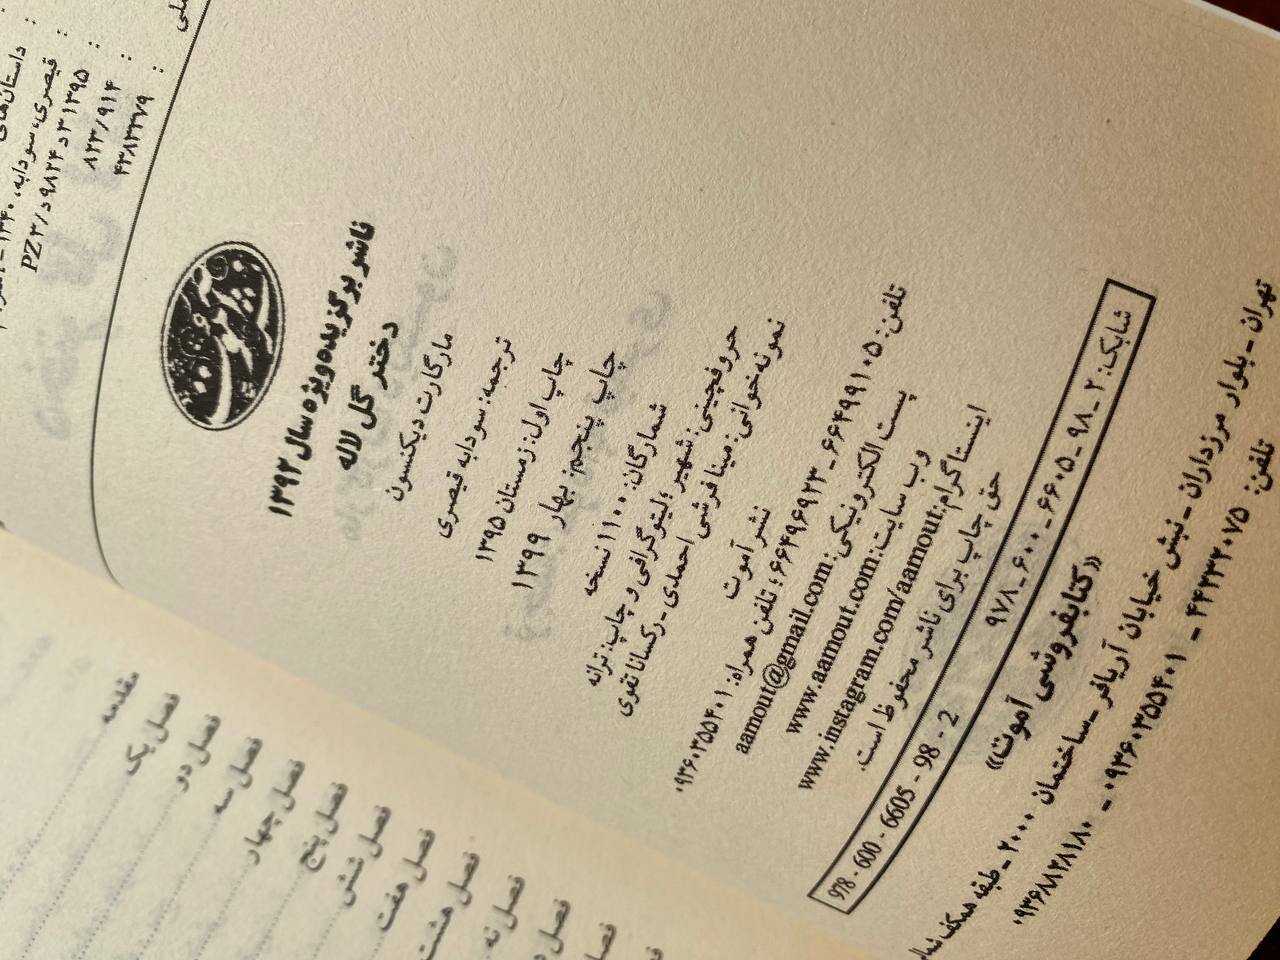 داستان‌های
قیصری، سودابه، ۱۳۴۰ -
PZ۳/د۹۸۲۴د۳ ۱۳۹۵
۸۲۳/۹۱۴
۴۳۸۳۳۷۹
ناشر برگزیده ویژه سال ۱۳۹۲
دختر گل لاله
مارگارت دیکنسون
ترجمه: سودابه قیصری
چاپ اول: زمستان ۱۳۹۵
چاپ پنجم: بهار ۱۳۹۹
شمارگان: ۱۱۰۰ نسخه
حروفچینی: شهیر؛ لیتوگرافی و چاپ: ترانه
نمونه‌خوانی: مینا فرشی احمدی - رکسانا تقوی
نشر آموت
تلفن: ۶۶۴۹۹۱۰۵ - ۶۶۴۹۶۹۲۳؛ تلفن همراه: ۰۹۳۶۰۳۵۵۴۰۱
پست الکترونیکی: aamout@gmail.com
وب سایت: www.aamout.com
اینستاگرام: www.instagram.com/aamout
حق چاپ برای ناشر محفوظ است.
شابک: ۲ - ۹۸ - ۶۶۰۵ - ۶۰۰ - ۹۷۸
978 - 600 - 6605 - 98 - 2
«کتابفروشی آموت»
تهران - بلوار مرزداران - نبش خیابان آریافر - ساختمان ۲۰۰۰ - طبقه همکف
تلفن: ۴۴۲۳۲۰۷۵ - ۰۹۳۶۰۳۵۵۴۰۱ - ۰۹۳۶۸۸۲۸۱۸۰
مقدمه
فصل یک
فصل دو
فصل سه
فصل چهار
فصل پنج
فصل شش
فصل هفت
فصل هشت
فصل نه